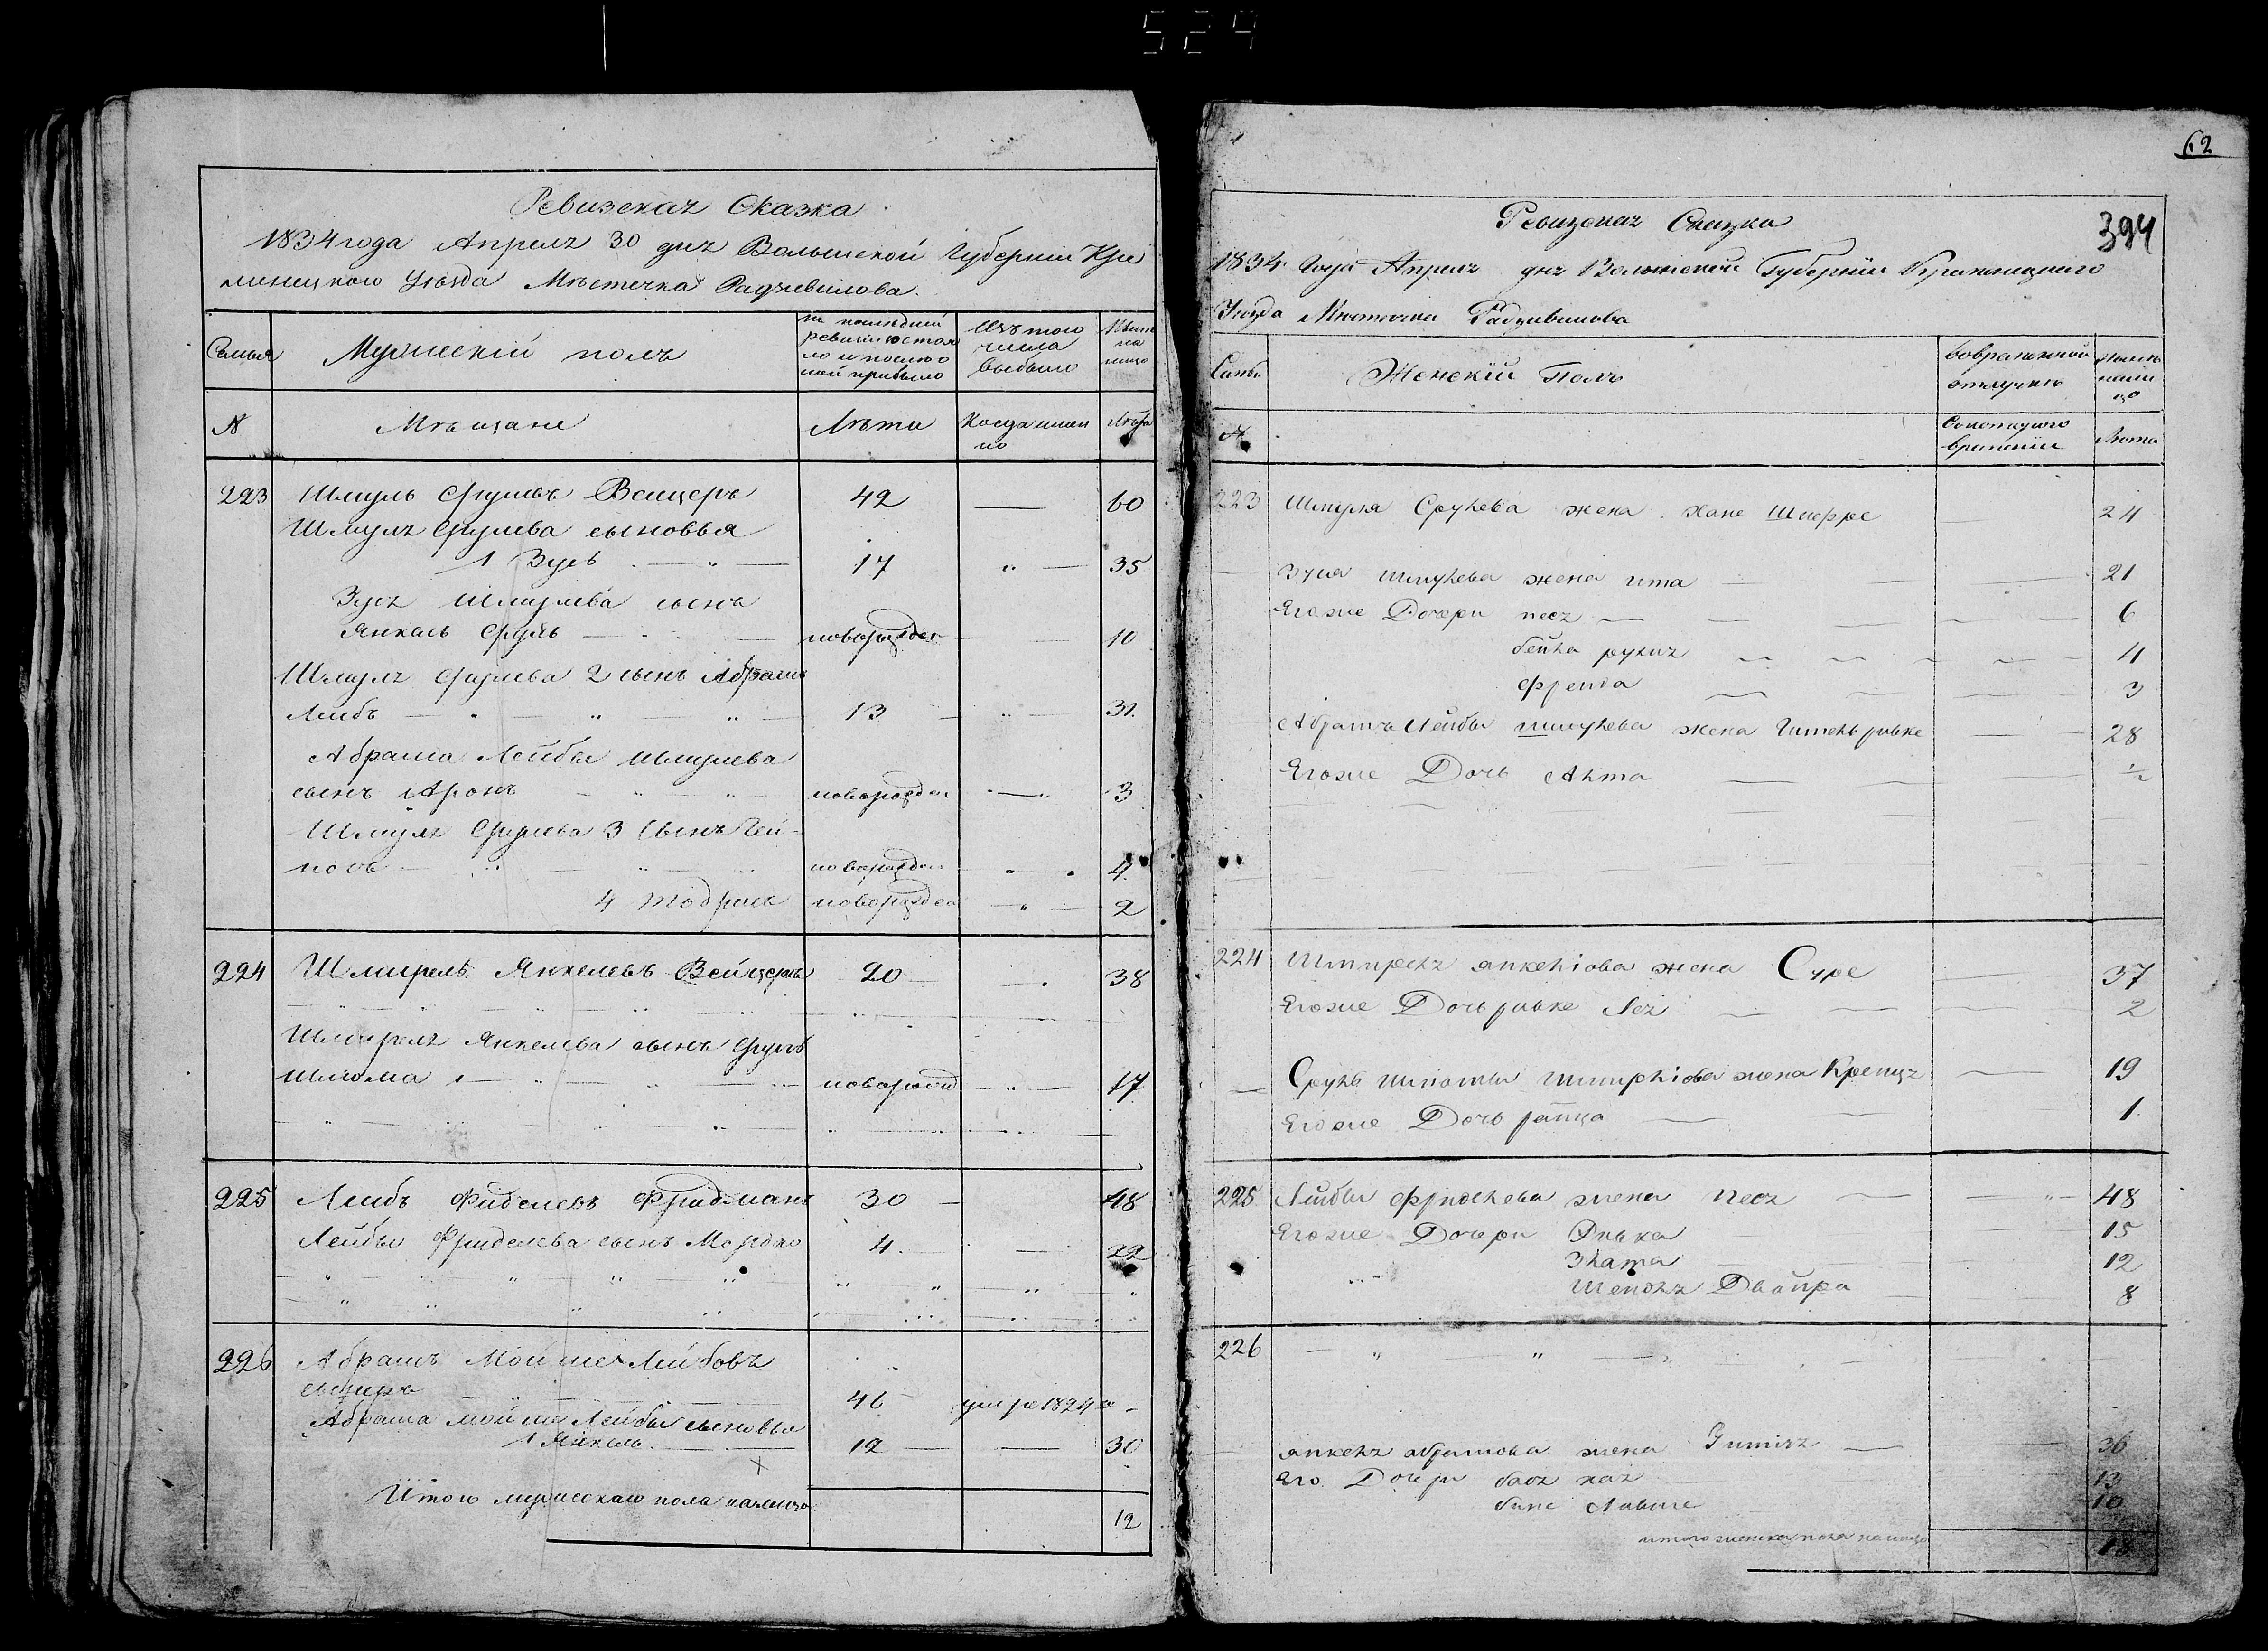 524
Ревизская Сказка
1834 года Апреля 30 дня Волынской Губернiи Кре
менецкого Уѣзда Мѣстечка Радзивилова.
Семья
Мужескiй полъ
по последней
ревизiи состоя
ло и после о
ной прибыло
Изъ того
числа
выбыло
Нынѣ
на
лицо
№
Мѣщане
Лѣта
Когда имен
но
Лѣта
223 Шмуль Срулевъ Вейцеръ 42 — 60
Шмуля Срулева сыновья
1 Зусь — „ — 17 „ — 35
Зуся Шмулева сынъ
Янкель Сруль — новорожден — 10
Шмуля Срулева 2 сынъ Абрамъ
Лейбъ — „ — „ — „ — 13 — „ — 31
Абрама Лейбы Шмулева
сынъ Аронъ — „ — новорожден — „ 3
Шмуля Срулева 3 Сынъ Гей-
нохъ — „ — новорожден — „ 4
4 Тодрис новорожден — „ — 2
224 Шмирель Янкелевъ Вейцеръ 20 — 38
Шмиреля Янкелева сынъ Сруль
Шлиома 1 — „ — „ новорожд — „ — 17
225 Лейбъ Фиделевъ Фридманъ 30 — 48
Лейбы Фриделева сынъ Мордко 4. — 22
226 Абрамъ Мойше Лейбовъ
46 умре 1824 го -
Абрама Мойше Лейбы сыновья
1 Янкель. — 12 — 30
Итого мужескаго пола налицо
12
62
394
Ревизская Сказка
1834 Года Апреля дня Волынской Губернiи Кременецкого
Уѣзда Мѣстечка Радзивилова
Семья
Женскiй Полъ
Вовременной
отлучкѣ
Нынѣ
нали
цо
№
Съкотораго
времени
Лѣта
223 Шмуля Срулева жена Хане Шифре — 24
Зуся Шмулева жена Ита — 21
Егоже Дочери Песя — 6
бейла рухля 4
Фрейда 3
Абрамъ Лейбы Шмулева жена Гитель ривке — 28
Егоже Дочь Алта — ½
224 Шмиреля Янкелiова жена Суре — 37
Егоже Дочь ривке Лея — 2
Сруль Шлiомы Шмирлiова жена Крейнця — 19
Егоже Дочь райца — 1
225 Лейбы Фриделева жена Песя — „ — 48
Егоже Дочери Ривка 15
Злата 12
Шейндля Двойра 8
226 — „ — „ —
Янкеля Абрамова жена 36
Его Дочери бася хая 13
10
итого женска пола налицо
18